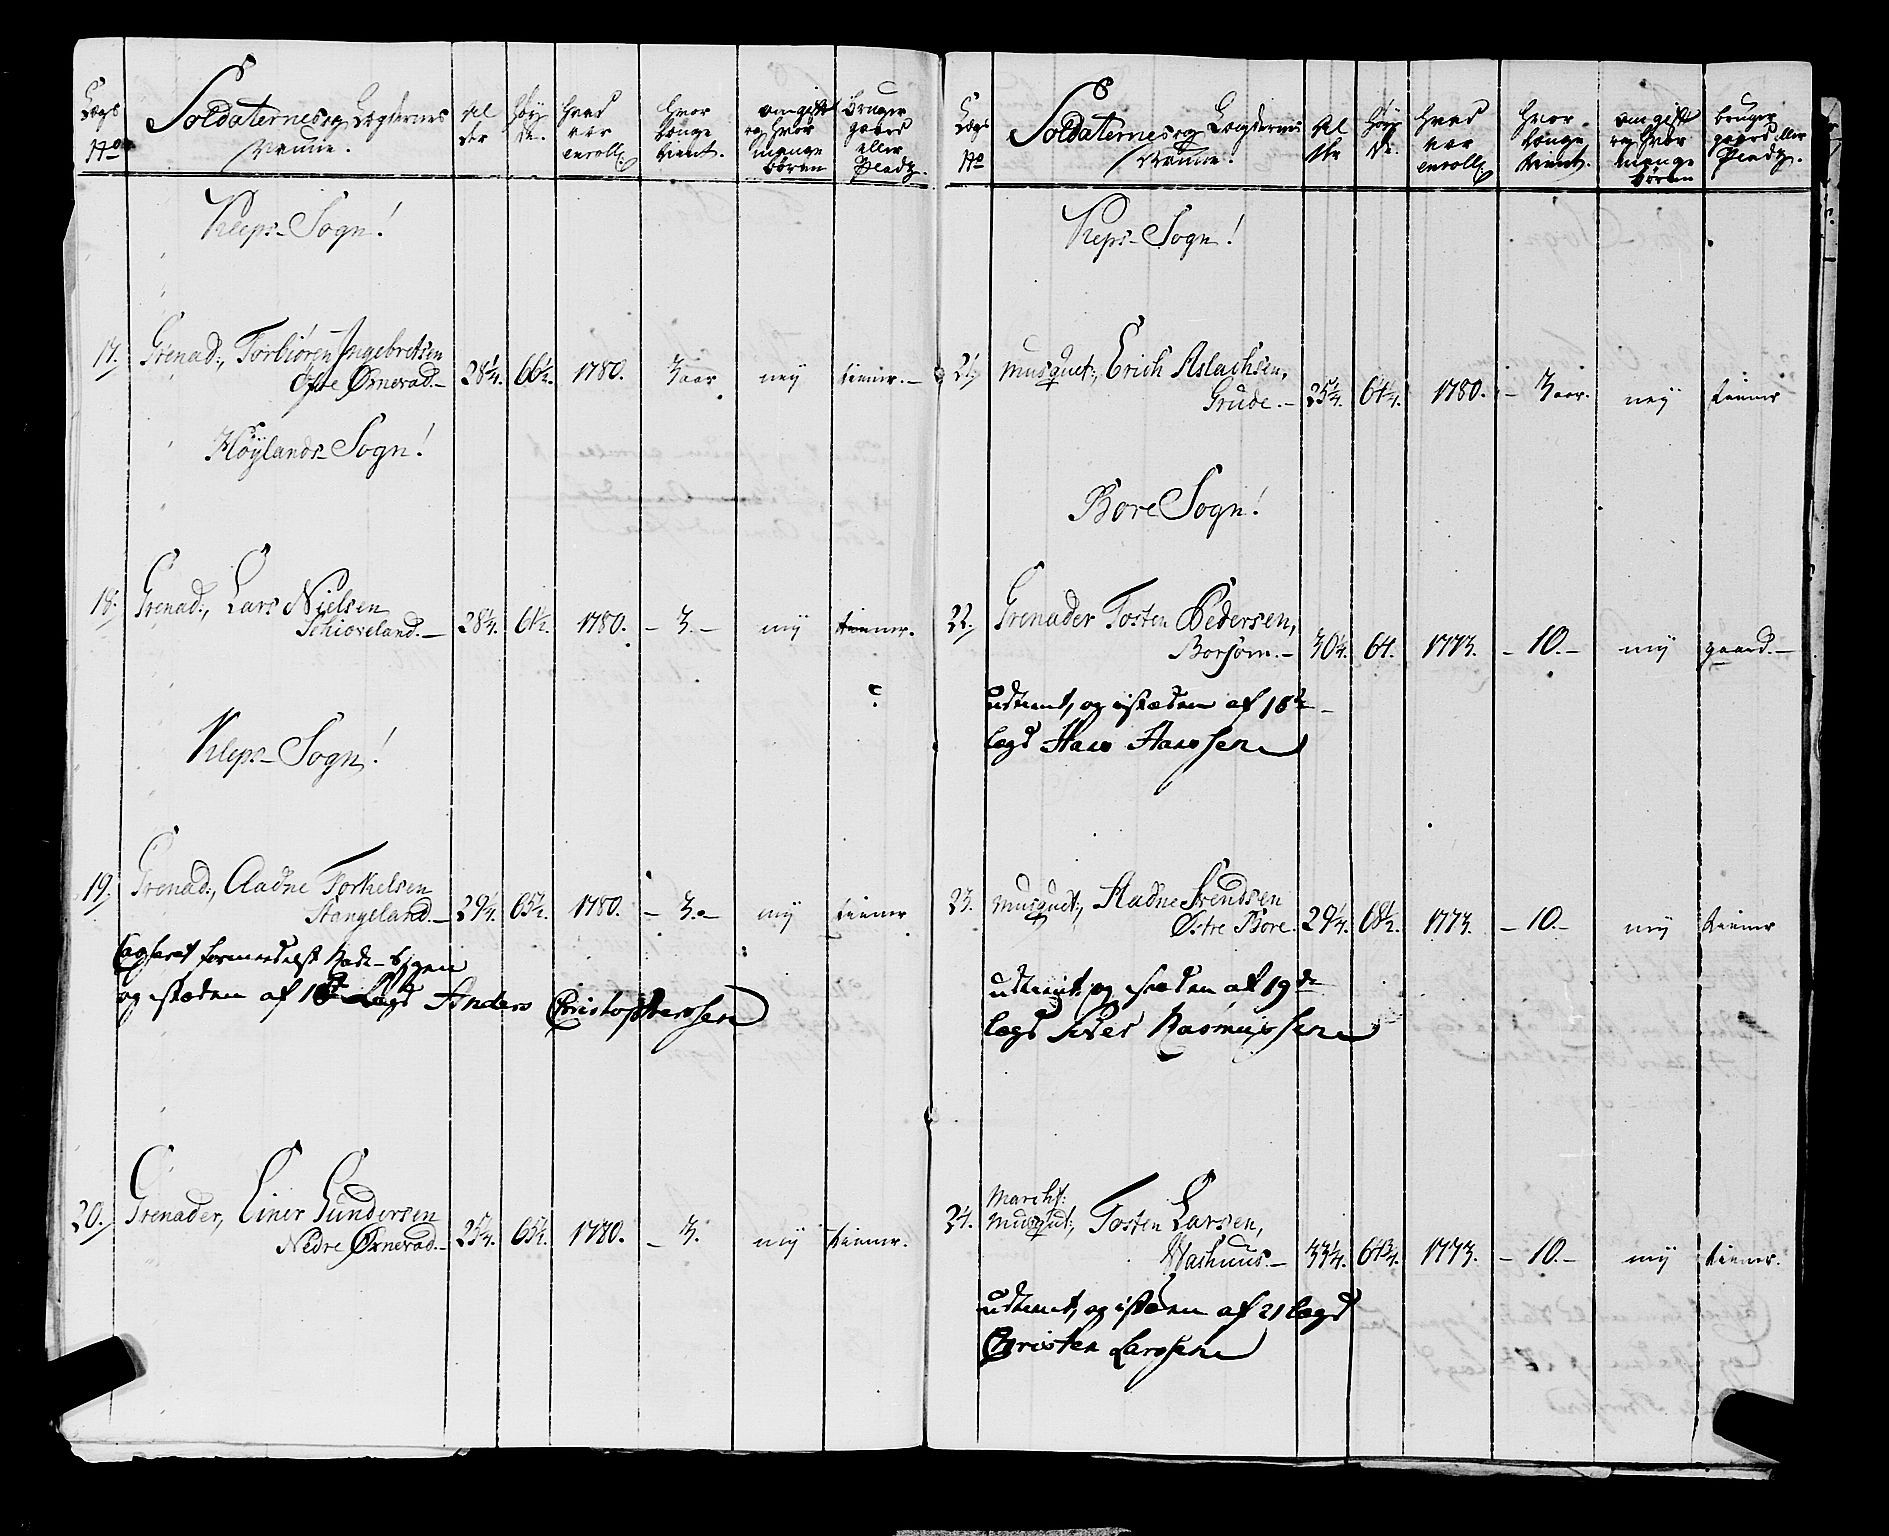 Lægs No
Soldaternes og Lægdernes Nafne.
Al der
Høy de.
Hvad aar enroll.
Hvor længe tient.
om gift og hvor mange børen
bruger gaard eller Pladz.
Kleps Sogn!
17. Grenad:, Torbiören Ingebretsen
Öfre Ørnevad. 28¼. 66½. 1780. 3 aar ney tiener.
Höylands Sogn!
18. Grenad:, Lars Nielsen
Schioveland. 28¼. 61½. 1780. 3. ney tiener.
Kleps Sogn!
19. Grenad:, Aadne Torkelsen
Stangeland. 29¼. 65½. 1780. 3. ney tiener
Casseret formedelst Rade-sygen
og i stæden af 18de Lægd Anders Christophersen
20. Grenader, Einer Gundersen
Nedre Ørnevad. 25¼. 65½. 1780. 3. ney tiener.
Lægs No
Soldaternes og Lægdernes Nafne.
Al der
Høy de.
Hvad aar enroll.
Hvor længe tient.
om gift og hvor mange børen
bruger gaard eller Pladz.
Kleps Sogn!
21. Musquet:, Erich Aslachsen,
Grude. 25¼. 64¼. 1780. 3 aar. ney tiener
Bore Sogn!
22. Grenader Tosten Pedersen,
Borsöm. 30¼. 64. 1773. 10. ney gaard.
udtient, og i stæden af 18de
lægd Hans Hansen
23. Musquet:, Aadne Svendsen
Østre Bore. 29¼. 68½. 1773. 10. ney tiener
udtient og i stæden af 19de
lægd Siver Rasmussen
24. Marcht:
Musqut:, Tosten Larsen,
Washuus. 33¼. 64¾. 1773. 10. ney tiener.
udtient, og i stæden af 21 lægd
Christen Larssen